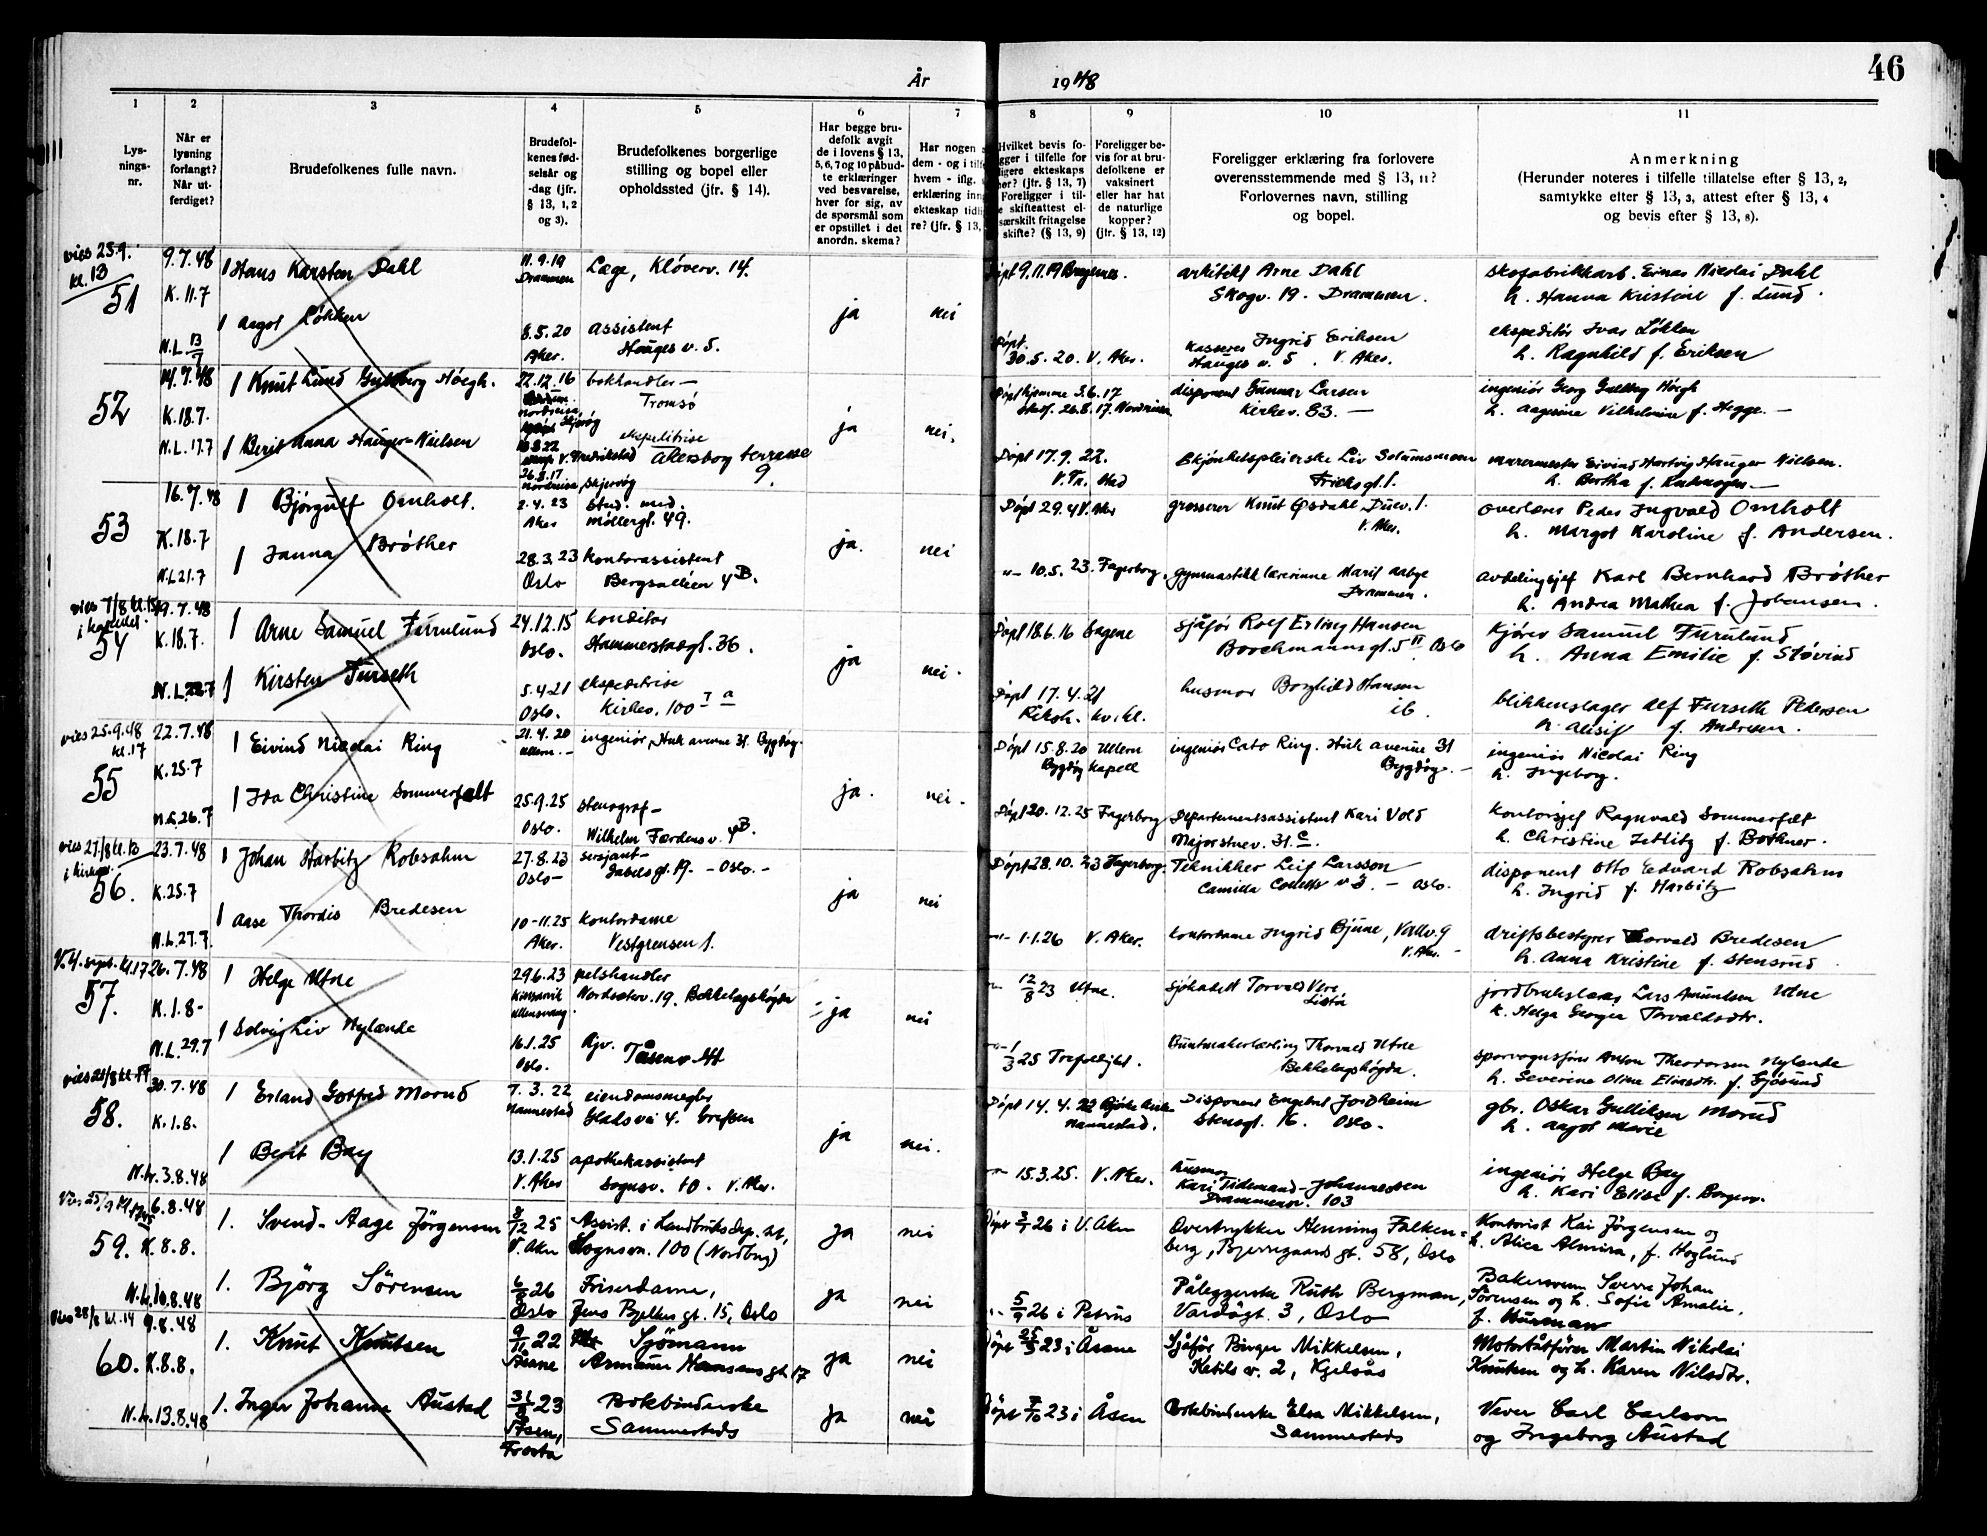 46
År 1948
1 2 3 4 5 6 7 8 9 10 11
Lys-
nings-
nr.
Når er
lysning
forlangt?
Når ut-
ferdiget?
Brudefolkenes fulle navn.
Brudefol-
kenes fød-
selsår og
-dag (jfr.
§ 13, 1, 2
og 3).
Brudefolkenes borgerlige
stilling og bopel eller
opholdssted (jfr. § 14).
Har begge bru-
defolk avgit
de i lovens § 13,
5, 6, 7 og 10 påbud-
te erklæringer
ved besvarelse,
hver for sig, av
de spørsmål som
er opstillet i det
anordn. skema?
Har nogen
dem - og i tilf
hvem - iflg.
erklæring inn
ekteskap tidl
re? (jfr. § 13,
Hvilket bevis fo-
gger i tilfelle for
ligere ekteskaps
her? (jfr. § 13, 7)
Foreligger i til-
e skifteattest el-
særskilt fritagelse
skifte? (§ 13, 9)
Foreligger be-
vis for at bru-
defolkene er
vaksinert
eller har hat
de naturlige
kopper?
(jfr. § 13, 12)
Foreligger erklæring fra forlovere
overensstemmende med § 13, 11?
Forlovernes navn, stilling
og bopel.
Anmerkning
(Herunder noteres i tilfelle tillatelse efter § 13, 2,
samtykke efter § 13, 3, attest efter § 13, 4
og bevis efter § 13, 8).
vies 25.9.
kl. 13
51
9.7.48
K. 11.7
N.L. 13/7
1 Hans Karsten Dahl
11.9.19
Drammen
Læge, Kløverv. 14.
ja nei
Døpt 9.11.19 Bragenes.
arkitekt Arne Dahl
Skogv. 19. Drammen.
skofabrikkarb. Einar Nicolai Dahl
h. Hanna Kristine f. Lund.
1 Aagot Løkken
8.5.20
Aker.
assistent
Hauges v. 5.
Døpt.
30.5.20. V. Aker.
kasserer Ingrid Eriksen
Hauges v. 5. V. Aker.
ekspeditør Ivar Løkken
h. Ragnhild f. Eriksen
52
14.7.48
K. 18.7.
N.L. 17.7
1 Knut Lund Guldberg Høegh.
22.12.16
bokhandler -
Tromsø
ja nei.
Døpt hjemme 3.6.17
stadf. 26.8.17. Nordreisa
disponent Gunnar Larsen
Kirkev. 83. -
ingeniør Georg Guldberg Høegh
h. Aagesine Vilhelmine f. Hegge. -
1 Berit Anna Hauger-Nielsen
V. Fredrikstad
26.8.17
Nordreisa, Skjervøy
ekspeditrise
Akersborg terrasse
9.
Døpt 17.9.22.
Skjønhetspleierske Liv
murermester Eivind Hartvig Hauger Nielsen.
53
16.7.48
K. 18.7
N.L. 21.7
1 Bjørgulf Omholt.
2.4.23
Aker
stud. med.
Møllergt. 49.
ja. nei
Døpt 29.4 V. Aker
grosserer Knut Opsdahl, Duev. 1.
V. Aker.
overlærer Peder Ingvald Omholt
h. Margot Karoline f. Andersen.
1 Janna Brøther
28.3.23
Oslo
kontorassistent
Bergsalléen 4B.
" - 10.5.23. Fagerborg.
gymnastikklærerinne Marit Aabye
Drammen.
avdelingsjef Karl Bernhard Brøther
h. Andrea Mathea f. Johansen.
vies 7/8 kl. 15
i kapellet.
54
19.7.48
K. 18.7.
N.L. 22.7
1 Arne Samuel Furulund
24.12.15
Oslo.
konditor
Hammerstadgt. 36.
ja nei.
Døpt 18.6.16 Sagene
sjåfør Rolf Erling Hansen
Borchmannsgt. 5 II Oslo
kjører Samuel Furulund
h. Anna Emilie f. Støvind
1 Kirsten Furseth
5.4.21
Oslo.
ekspeditrise
Kirkev. 100 I a
Døpt 17.4.21
Riksh. kv. kl.
husmor Borghild Hansen
ib.
blikkenslager Alf Furseth Pedersen
h. f. Andresen.
vies 25.9.48
kl. 17
55
22.7.48
K. 25.7
N.L. 26.7
1 Eivind Nicolai Ring
21.4.20
Ullern. -
ingeniør, Huk avenue 31. Bygdøy.
ja. nei.
Døpt 15.8.20 Ullern
Bygdøy kapell
ingeniør Cato Ring. Huk avenue 31
Bygdøy. -
ingeniør Nicolai Ring
h. Ingeborg.
1 Ida Christine Sommerfelt
25.9.25
Oslo.
stenograf -
Wilhelm Færdens v. 4B.
Døpt 20.12.25 Fagerborg
Departementsassistent Kari Vold
Majorstuev. 31 C
kontorsjef Ragnvald Sommerfelt
h. Christine f. Bothner.
vies 27/8 kl. 13
i kirken.
56.
23.7.48
K. 25.7
N.L. 27.7.
1 Johan Harbitz Robsahm
27.8.23
Oslo -
sersjant -
Gabelsgt. 19. - Oslo. -
ja nei
Døpt 28.10.23 Fagerborg.
Tekniker Leif Larsson
Camilla Colletts v. 3. - Oslo.
disponent Otto Edvard Robsahm
h. Ingrid f. Harbitz
1 Aase Thordis Bredesen
10-11.25
Aker.
kontordame
Vestgrensen 1.
-"- 1.1.26 V. Aker.
kontordame Ingrid Bjune, Vallv. 9
V. Aker. -
driftsbestyrer Torvald Bredesen
h. Anna Kristine f. Stensrud
V. 4. sept. kl. 17
57.
26.7.48
K. 1.8 -
N.L. 29.7
1 Helge Utne
29.6.23
Kinsarvik
Ullensvang.
pelshandler
Nordseterv. 19. Bekkelagshøgda
ja nei
-"- 12/8 23 Utne.
sjøkadett Torvald Vere
Lista
jordbrukslærer Lars Amundsen Utne
h. Helga Georgea Torvaldsdtr.
1 Solveig Liv Nylænde
16.1.25
Oslo.
Rgv.
Tåsenv.
1/3 25
Buntmakerlærling Thorvald Utne
Bekkelagshøgda.
sporvognsfører Anton Theodorsen Nylænde
h. Severine Oline Eliasdtr. f. Gjøsund
vies 21/8 kl. 17
58.
30.7.48
K. 1.8.
N.L. 3.8.48
1 Erland Gotfred Morud
7.3.22
Nannestad
eiendomsmegler
Gladsvei 4. Grefsen
ja nei.
Døpt 14.4.22 Bjørke kirke
Nannestad.
Disponent Engebret Jordheim
Stensgt. 16. Oslo.
gbr. Oskar Gulliksen Morud
h. Aagot Marie
1 Berit Bay
13.1.25
V. Aker
apothekassistent
Sognsv. 10. V. Aker.
-"- 15.3.25. V. Aker.
husmor
Kari Tidemand-Johannessen
Drammensv. 103
ingeniør Helge Bay
h. Kari Elise f. Borgen.
59.
6.8.48
K. 8.8.
N.L. 10.8.48
1. Svend-Aage Jörgensen
8/12 25
V. Aker
Assist. i Landbruksdep.
Sognsvn. 100 (Nordberg)
ja nei
Döpt 3/1 26 i V. Aker
Overtrykker Henning Falken-
berg, Bjerregaards gt. 58, Oslo
Kontorist Kai Jörgensen og
h. Alice Almira, f. Hoglund
1. Björg Sörensen
6/8 26
Oslo
Friserdame,
Jens Bjelkes gt. 15, Oslo
ja nei
-"- 5/9 26 i Petrus
Påleggerske Ruth Bergman,
Vardögt. 3, Oslo
Bakersvenn Sverre Johan
Sörensen og h. Sofie Amalie,
f. Burman
Vies 28/8 kl. 14
60.
9.8.48
K. 8.8.
N.L. 13.8.48
1. Knut Knutsen
9/11 22
Åsane
Sjömann
Armauer Hansens gt. 17
ja nei
Döpt 25/3 23 i Åsane
Sjåfør Birger Mikkelsen,
Ketils v. 2, Kjelsås
Motorbåtfører Martin Nikolai
Knutsen og h. Karen Nilsdtr.
1. Inger Johanne Austad
31/8 23
Åsen,
Frosta
Bokbinderske
Sammesteds
ja nei
Döpt 7/10 23 i Åsen
Bokbinderske Elsa Mikkelsen,
Sammesteds
Vever Carl Carlson
og Ingeborg Austad